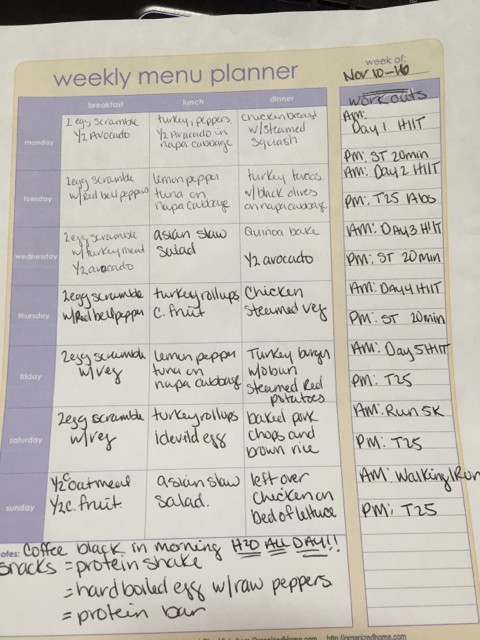 weekly menu planner
week of:
Nov 10-16
breakfast
lunch
dinner
workouts
monday
2egg scramble
1/2 Avocado
turkey, peppers
1/2 Avocado in
napa cabbage
chicken breast
w/steamed
squash
Am:
Day 1 HIIT
PM: ST 20min
tuesday
2egg scramble
w/Red bell peppers
lemon pepper
tuna on
napa cabbage
turkey tacos
w/black olives
on napa cabbage
AM: Day 2 HIIT
PM: T25 Abs
wednesday
2egg scramble
w/turkey meat
1/2 avocado
asian slaw
salad
Quinoa bake
1/2 avocado
AM: DAY3 HIIT
PM: ST 20 min
thursday
2egg scramble
w/Red bell pepper
turkey rollups
C. fruit
Chicken
steamed veg
AM: Day4 HIIT
PM: ST 20min
friday
2egg scramble
w/veg
lemon pepper
tuna on
napa cabbage
Turkey burger
w/o bun
steamed Red
potatoes
AM: Day 5 HIIT
PM: T25
saturday
2egg scramble
w/veg
turkey rollups
1 devild egg
baked pork
chops and
brown rice
AM: Run 5K
PM: T25
sunday
1/2 C oatmeal
1/2 C. fruit.
asian slaw
salad.
left over
chicken on
bed of lettuce
AM: Walking/Run
PM: T25
notes: Coffee black in morning H20 ALL DAY!!
snacks = protein shake
= hard boiled egg w/raw peppers
= protein bar
http://organizedhome.com